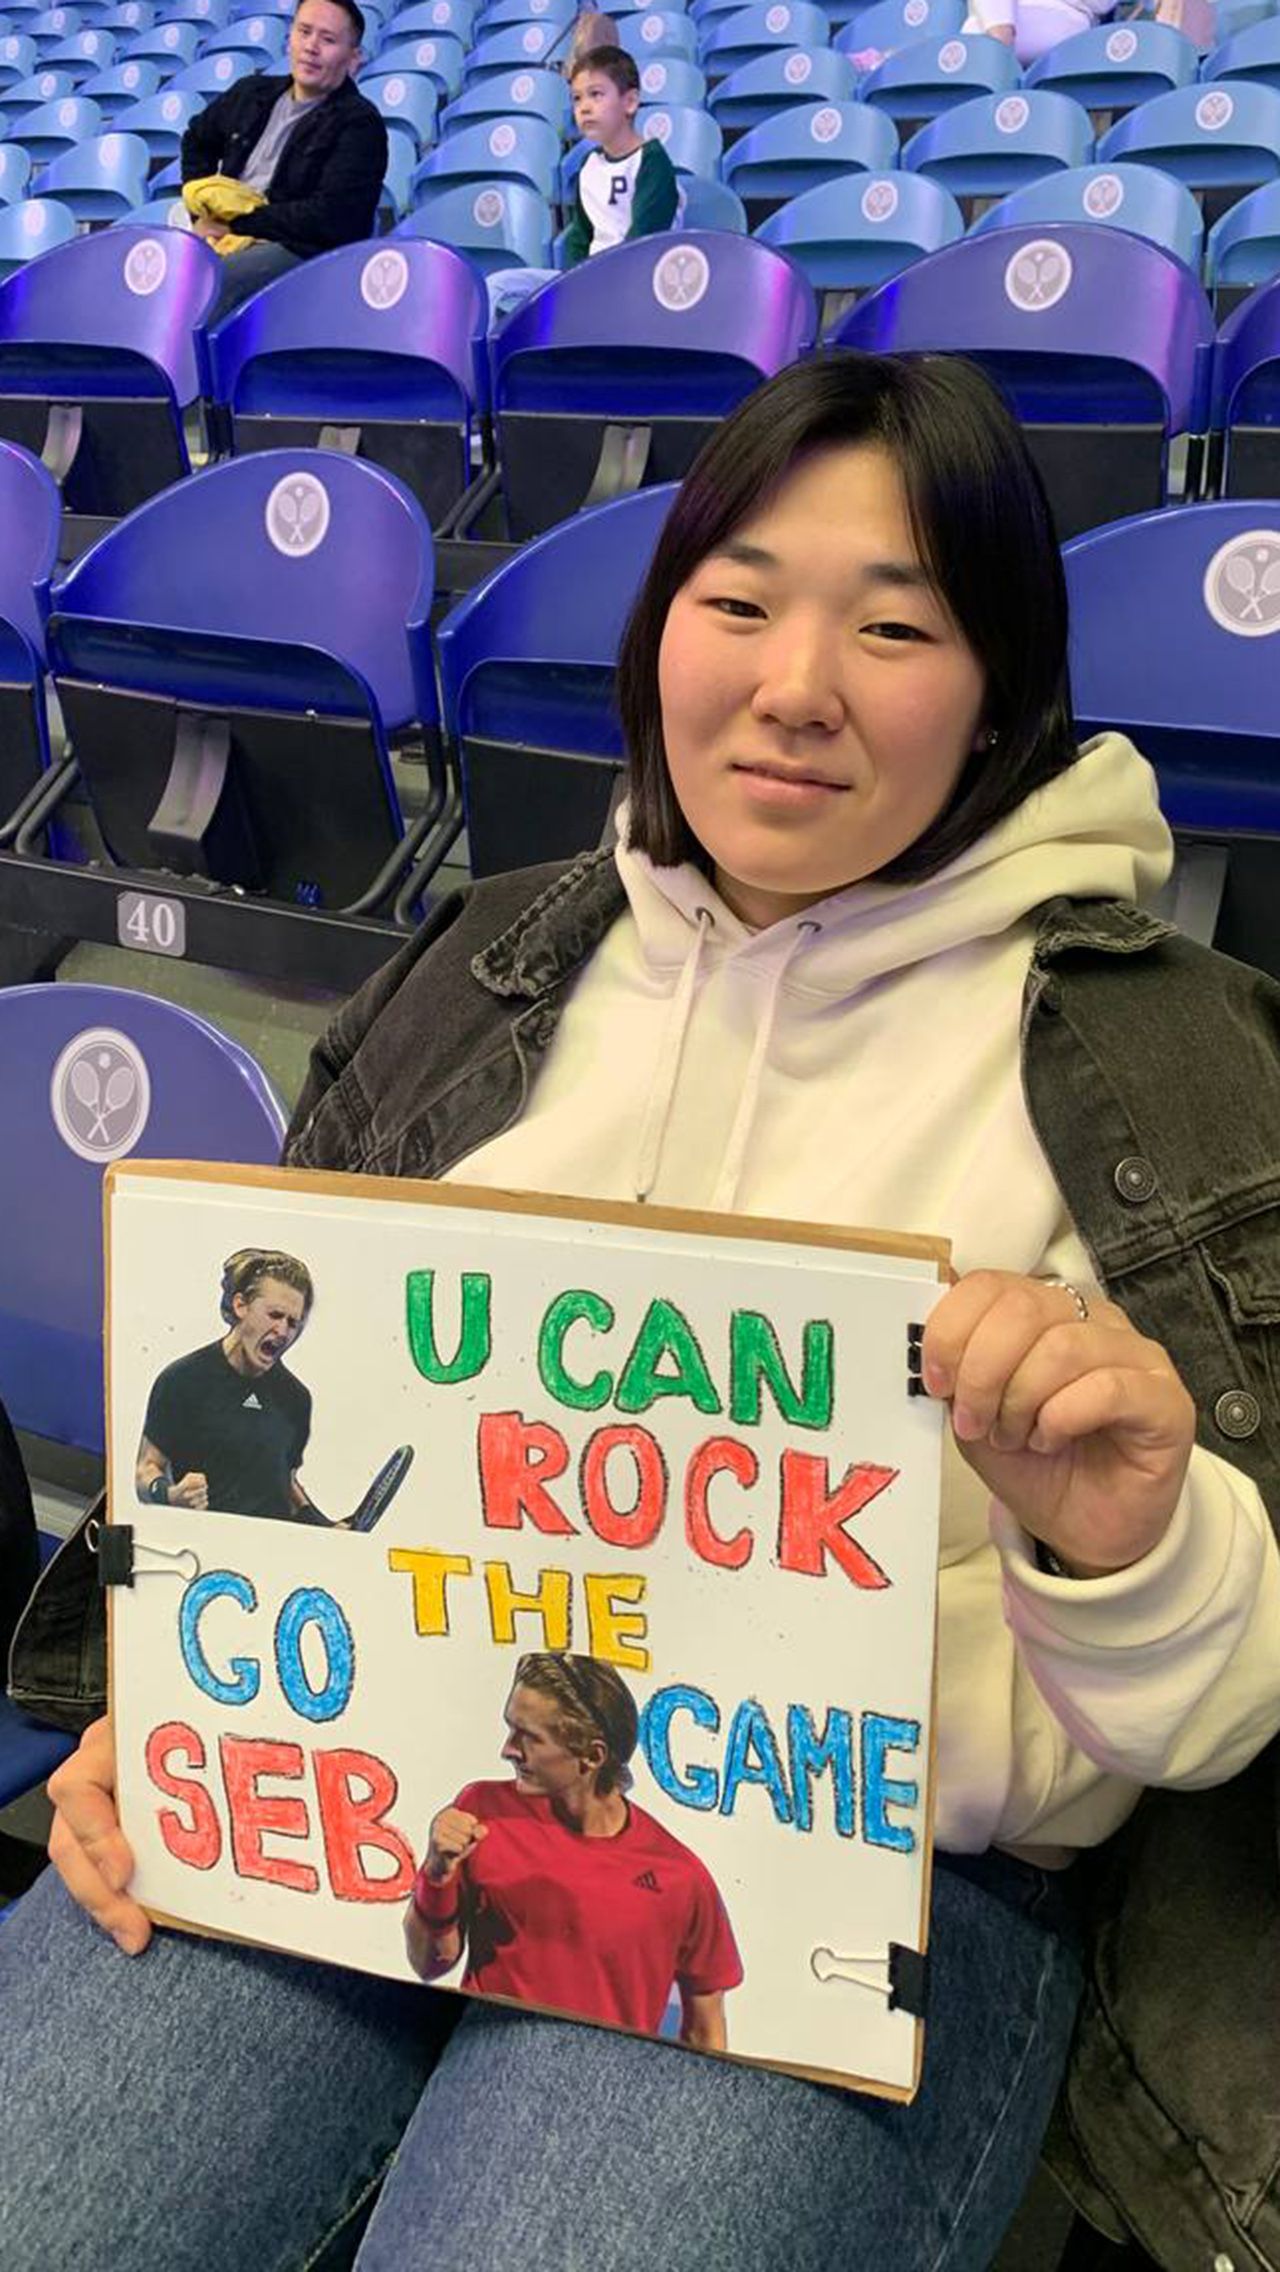 P
40
U CAN
ROCK
THE
GAME
GO
SEB